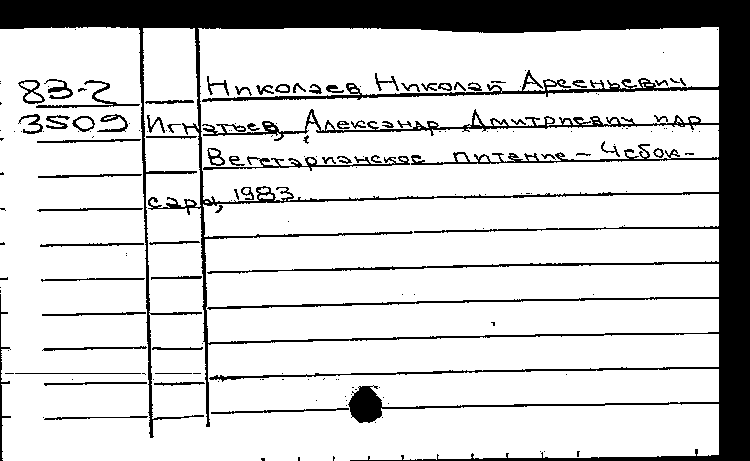 83-2 Николаев, Николай Арсеньевич
3509 Игнатьев, Александр Дмитриевич и др
Вегетарианское питание – Чебок-
сары, 1983.